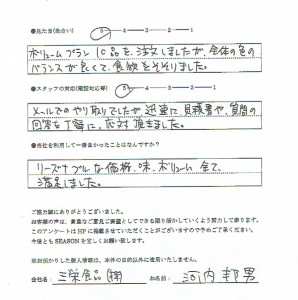 ●見た目(色合い) 5－4－3－2－1
ボリュームプラン10品を、注文しましたが、全体の色の
バランスが良くて、食欲をそそりました。
●スタッフの対応(電話応対等) 5－4－3－2－1
メールでのやり取りでしたが迅速に見積書や、質問の
回答など丁寧に、応対頂きました。
●当社を利用して一番良かったことはなんですか?
リーズナブルな価格、味、ボリューム全て、
満足しました。
ご協力誠にありがとうございました。
お客様の声は、貴重なご意見ご要望としてできる限り活かしていくよう努力して参ります。
このアンケートはHPに掲載させていただくことがございますので予めご了承ください。
今後ともSEASONを宜しくお願い致します。
※お預かりした個人情報は、本件の目的以外に使用いたしません。
会社名: 三栄食品(株) お名前: 河内 邦男